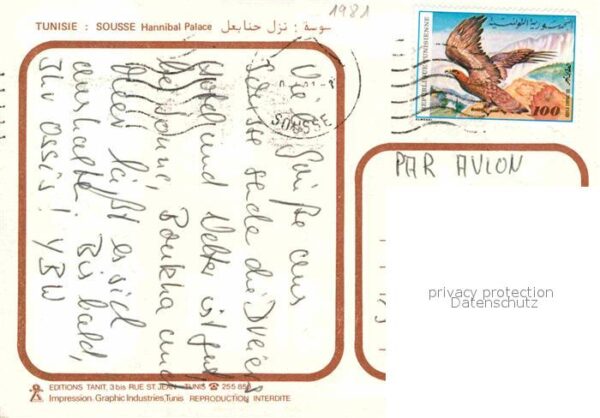 1981
TUNISIE : SOUSSE Hannibal Palace سوسة : نزل حنابعل
الجمهورية التونسية
REPUBLIQUE TUNISIENNE
100
SOUSSE
PAR AVION
Viele Grüße aus
Hotel und Wetter ist gut
die Sonne, Boukha und
Oder läßt es sich
aushalten. Bis bald,
Ihr Ossis!
privacy protection
Datenschutz
EDITIONS TANIT, 3 bis RUE ST. JEAN - TUNIS ☎ 255 85
Impression. Graphic Industries, Tunis REPRODUCTION INTERDITE